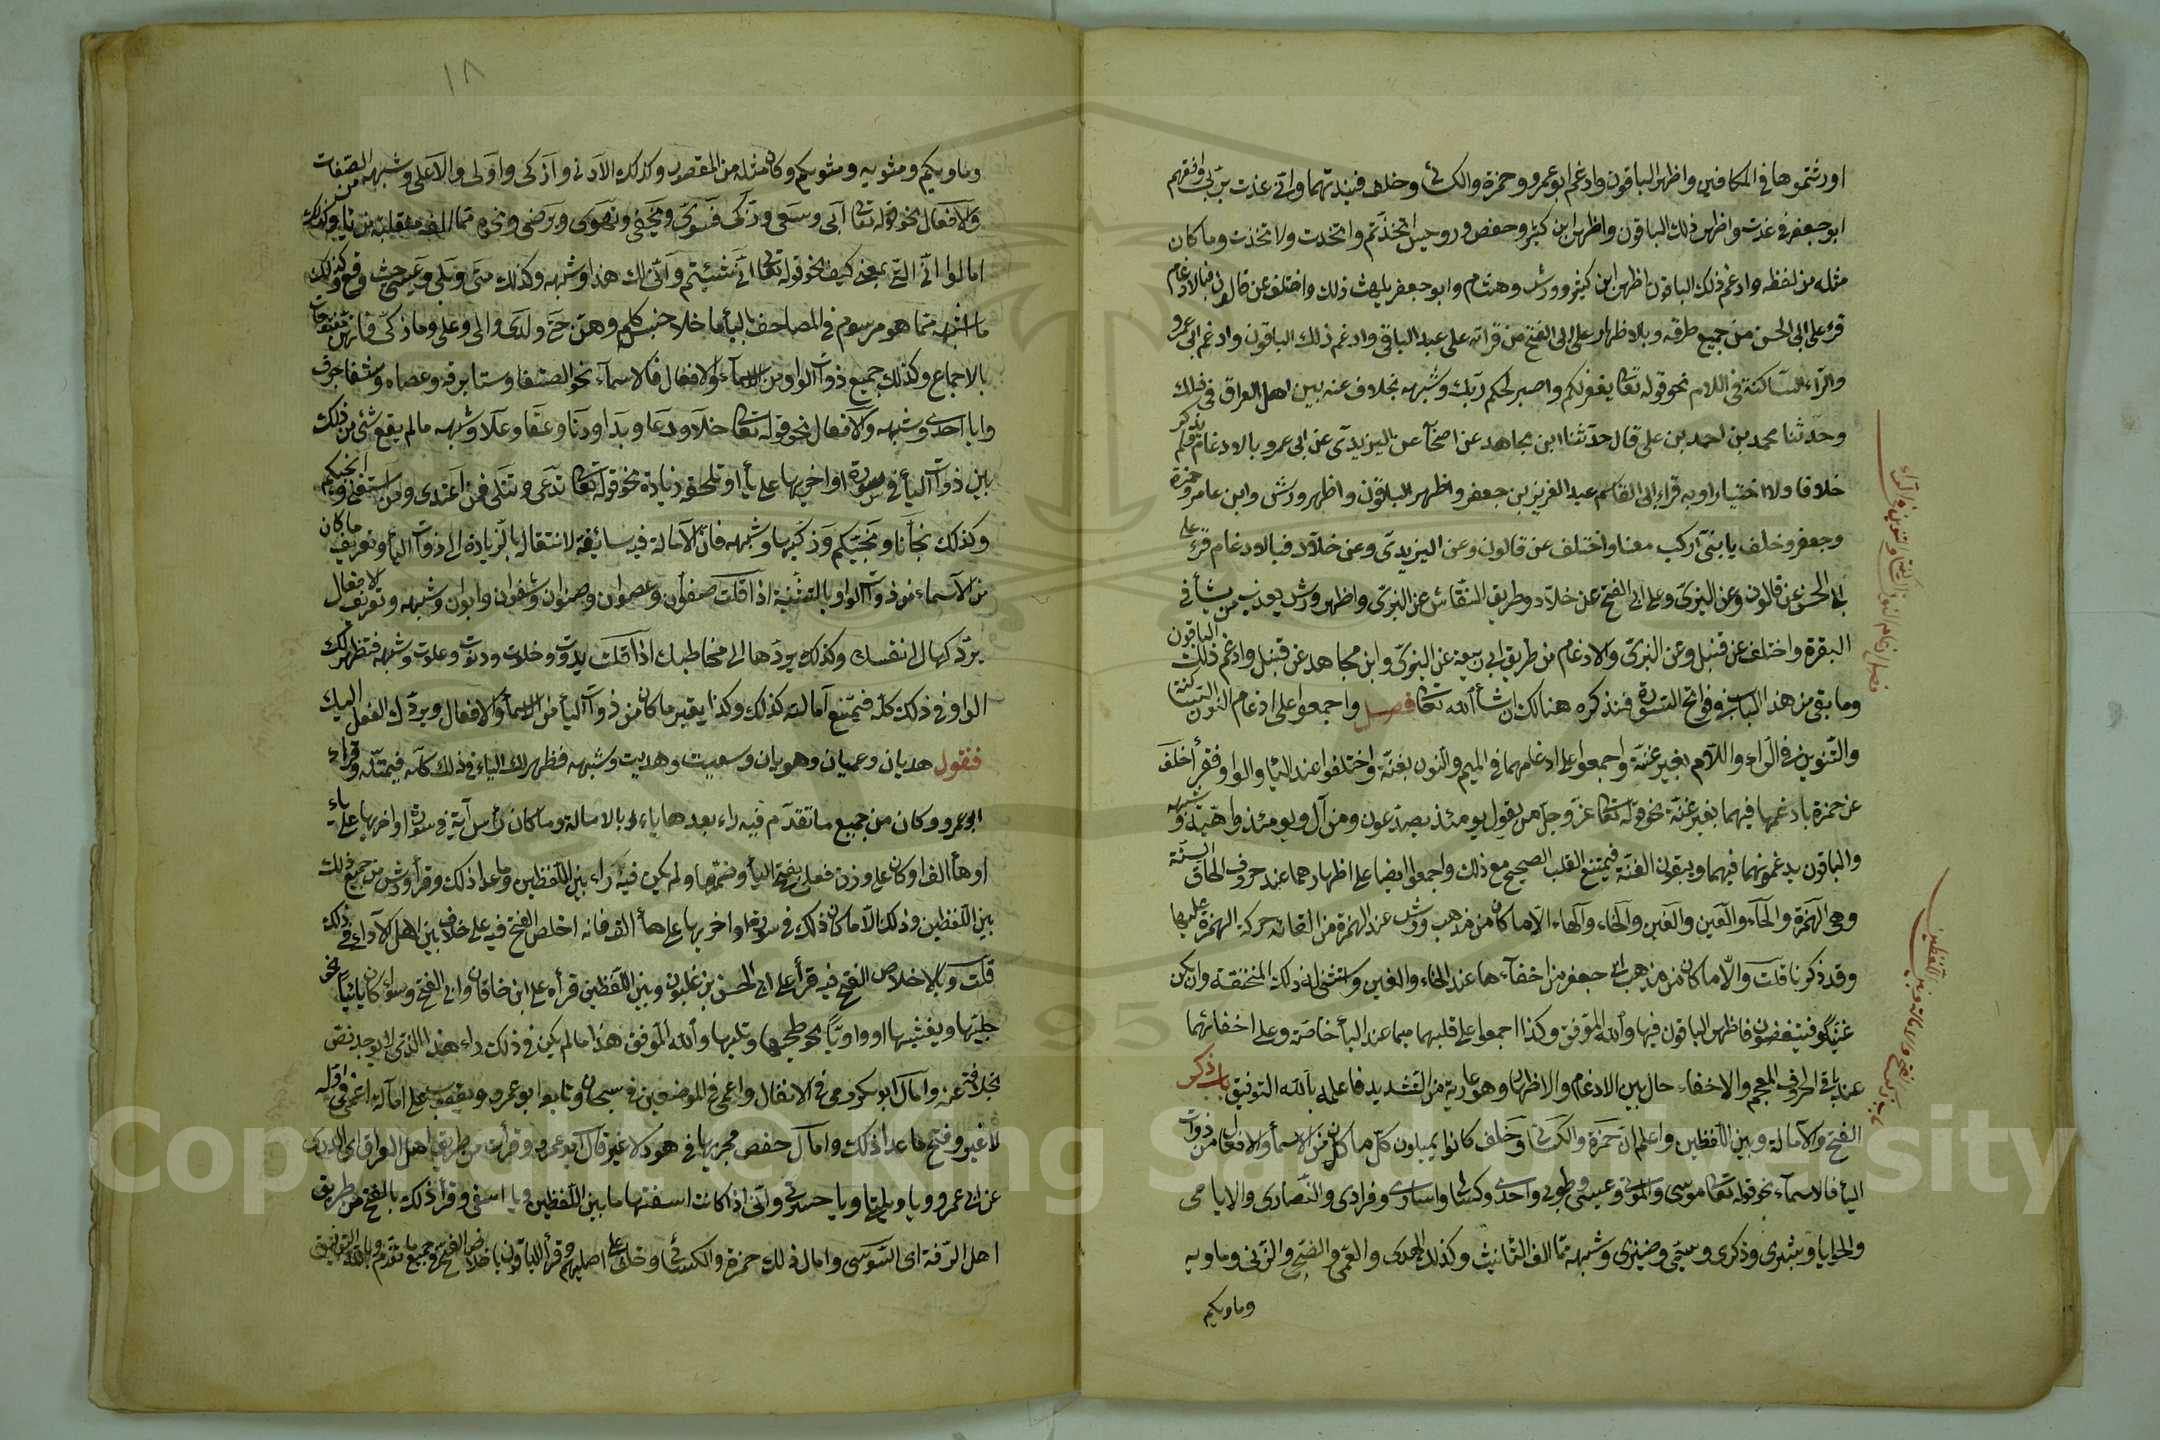 اورثتموها في المكانين واظهر الباقون وادغم ابو عمرو وحمزة والكسائي وخلف فنبذتها واني عذت بربي وافقهم
ابو جعفر في عذت واظهر ذلك الباقون واظهر ابن كثير وحفص ورويس اتخذتم واخذت ولاتخذت وما كان
مثله من لفظه وادغم ذلك الباقون اظهر ابن كثير وورش وهشام وابو جعفر يلهث ذلك واختلف عن قالون فبالادغام
قرء على ابي الحسن من جميع طرقه وبالاظهار على ابي الفتح من قراته على عبد الباقي وادغم ذلك الباقون وادغم ابو عمرو
والراء الساكنة في اللام نحو قوله تعا يغفر لكم واصبر لحكم ربك وشبهه بخلاف عنه بين اهل العراق في ذلك
وحدثنا محمد بن احمد بن علي قال حدثنا ابن مجاهد عن اصحابه عن اليزيدي عن ابي عمرو بالادغام ولم يذكر
خلافا ولا اختيارا وبه قراء الى القاسم عبد العزيز بن جعفر واظهر الباقون واظهر ورش وابن عامر وحمزة
وجعفر وخلف يا بني اركب معنا واختلف عن قالون وعن اليزيدي وعن خلاد فبالادغام قرء على
ابي الحسن عن قالون وعن اليزيدي وعلى ابي الفتح عن خلاد وطريق النقاش عن البزي واظهر ورش يعذب من يشاء في
البقرة واختلف عن قنبل وعن البزي والادغام من طريق ابي ربيعة عن البزي وابن مجاهد عن قنبل وادغم ذلك الباقون
وما بقي من هذ الباب في فواتح السورة فنذكره هنالك ان شاء الله تعا فصل واجمعوا على ادغام النون الساكنة
والتنوين في الراء واللام بغير غنة واجمعوا على ادغامهما في الميم والنون بغنة واختلفوا عند الياء والواو فقرأ خلف
عن حمزة بادغمها فيهما بغير غنة نحو قوله تعا عز وجل من يقول يومئذ يصدعون ومن آل ويومئذ واهية وشبهه
والباقون يدغمونهما فيهما ويبقون الغنة فيمتنع القلب الصحيح مع ذلك واجمعوا ايضا على اظهارهما عند حروف الحلق الستة
وهي الهمزة والحاء والعين والغين والخاء والهاء الا ما كان من مذهب ورش عند الهمزة من القائه حركة الهمزة عليها
وقد ذكرنا قلت والا ما كان من مذهب ابي جعفر من اخفاءها عند الخاء والغين واستثنى له ذلك المنخنقة وان يكن
غنيا فسينغضون فاظهر الباقون فيها والله الموفق وكذا اجمعوا على قلبهما ميما عند الباء خاصة وعلى اخفائهما
عند باقي الحروف المعجم والاخفاء حال بين الادغام والاظهار وهو عارية من التشديد فاعلمه بالله التوفيق باب ذكر
الفتح والامالة وبين اللفظين واعلم ان حمزة والكسائي وخلف كانوا يميلون كل ما كان من الاسماء والافعال من ذوات
الياء فالاسماء نحو قوله تعا موسى والموتى وعيسى وطوبى واحدى وكسالى واسارى وفرادى والنصارى والايامى
والحوايا وبشرى وذكرى وسيمى وضيزى وشبهه مما الفه التانيث وكذلك الهدى والعمى والضحى والزنى وماويه
وماويكم
فصل ادغام النون الساكنة والتنوين والراء
باب ذكر الفتح والامالة وبين اللفظين
١٨
وماويكم ومثويه ومثويكم وكان مثله من المقصور وكذلك الادنى وازكى واولى والاعلى وشبهه من الصفات
والافعال نحو قوله تعا ابى وسعى وزكى فسوى ويخفى وتهوى ويرضى ونحوه مما الفه منقلبة من ياء وكذلك
امالوا انى التي بمعنى كيف نحو قوله تعا انى شئتم وانى لك هذا وشبهه وكذلك متى وبلى وعسى حيث وقع وكذلك
ما اشبهه مما هو مرسوم في المصاحف بالياء ما خلا خمس كلم وهن حتى ولدى والى وعلى وما زكى فانهن مفتوحات
بالاجماع وكذلك جميع ذوات الواو من الاسماء والافعال فالاسماء نحو الصفا وسنا برقه وعصاه وشفا جرف
وابا احد وشبهه والافعال نحو قوله تعا خلا ودعا وبدا ودنا وعفا وعلا وشبهه ما لم يقع شئ من ذلك
بين ذوات الياء في سورة اواخر ايها على ياء او تلحقه زيادة نحو قوله تعا تدعى وتتلى فمن اعتدى ومن استعلى وانجيكم
وكذلك نجانا ونجيكم وزكيها وشبهه فان الامالة فيه سائغة لانتقاله بالزيادة الى ذوات الياء وتعريف ما كان
من الاسماء من ذوات الواو بالتثنية اذا قلت صفوان وعصوان وصنوان وشفوان وابوان وشبهه وتعريف الافعال
بردكها الى نفسك وكذلك يردها الى مخاطبك اذا قلت بدوت وخلوت ودنوت وعلوت وشبهه فتظهر لك
الواو في ذلك كله فيمتنع امالته كذلك وكذا يعتبر ما كان من ذوات الياء من الاسماء والافعال وبردك الفعل اليك
فتقول هديان وعميان وهويان وسعيت وهديت وشبهه فظهر لك الياء في ذلك كله فيميله وقراء
ابو عمرو وكان من جميع ما تقدم فيه راء بعدها ياء بالامالة وما كان رأس آية في سورة اواخر ايها على ياء
او هاء الف او كان على وزن فعلى بفتح الياء وضمها ولم يكن فيه راء بين اللفظين وما عدا ذلك وقرأ ورش من جميع ذلك
بين اللفظين وذلك الا ما كان ذلك في سورة اواخر ايها على هاء الف فانه اخلص الفتح فيه على خلاف بين اهل الاداء في ذلك
قلت وبالاخلاص الفتح فيه قرأ على ابي الحسن بن غلبون وبين اللفظين قرأه على ابن خاقان وابي الفتح وسواء كان يائيا نحو
جليها ويغشيها او واويا نحو طحيها وتليها والله الموفق هذا ما لم يكن في ذلك راء هذا الذي لا يوجد نص
بخلافه عنه وامال ابو بكر رمى في الانفال واعمى في الموضعين في سبحان وتابعه ابو عمرو ويعقوب على امالة اعمى في اوله
لا غير وفتح ما عدا ذلك وامال حفص مجريها في هود لا غير قال ابو عمرو وقرأت من طريق اهل العراق اى الدورى
عن ابي عمرو ويا ويلتا ويا حسرتى وانى اذا كانت استفهاما بين اللفظين ويا اسفى وقرأ ذلك بالفتح من طريق
اهل الرقة اى السوسى وامال ذلك حمزة والكسائي وخلف على اصلهم وقرأ الباقون باخلاص الفتح في جميع ما تقدم وبالله التوفيق